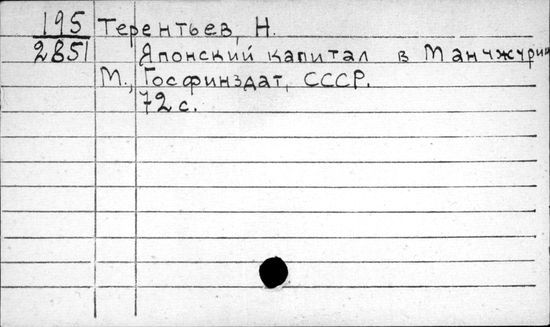 195 Терентьев, Н.
2851 Японский капитал в Манчжурии
М., Госфиниздат, СССР.
72 с.